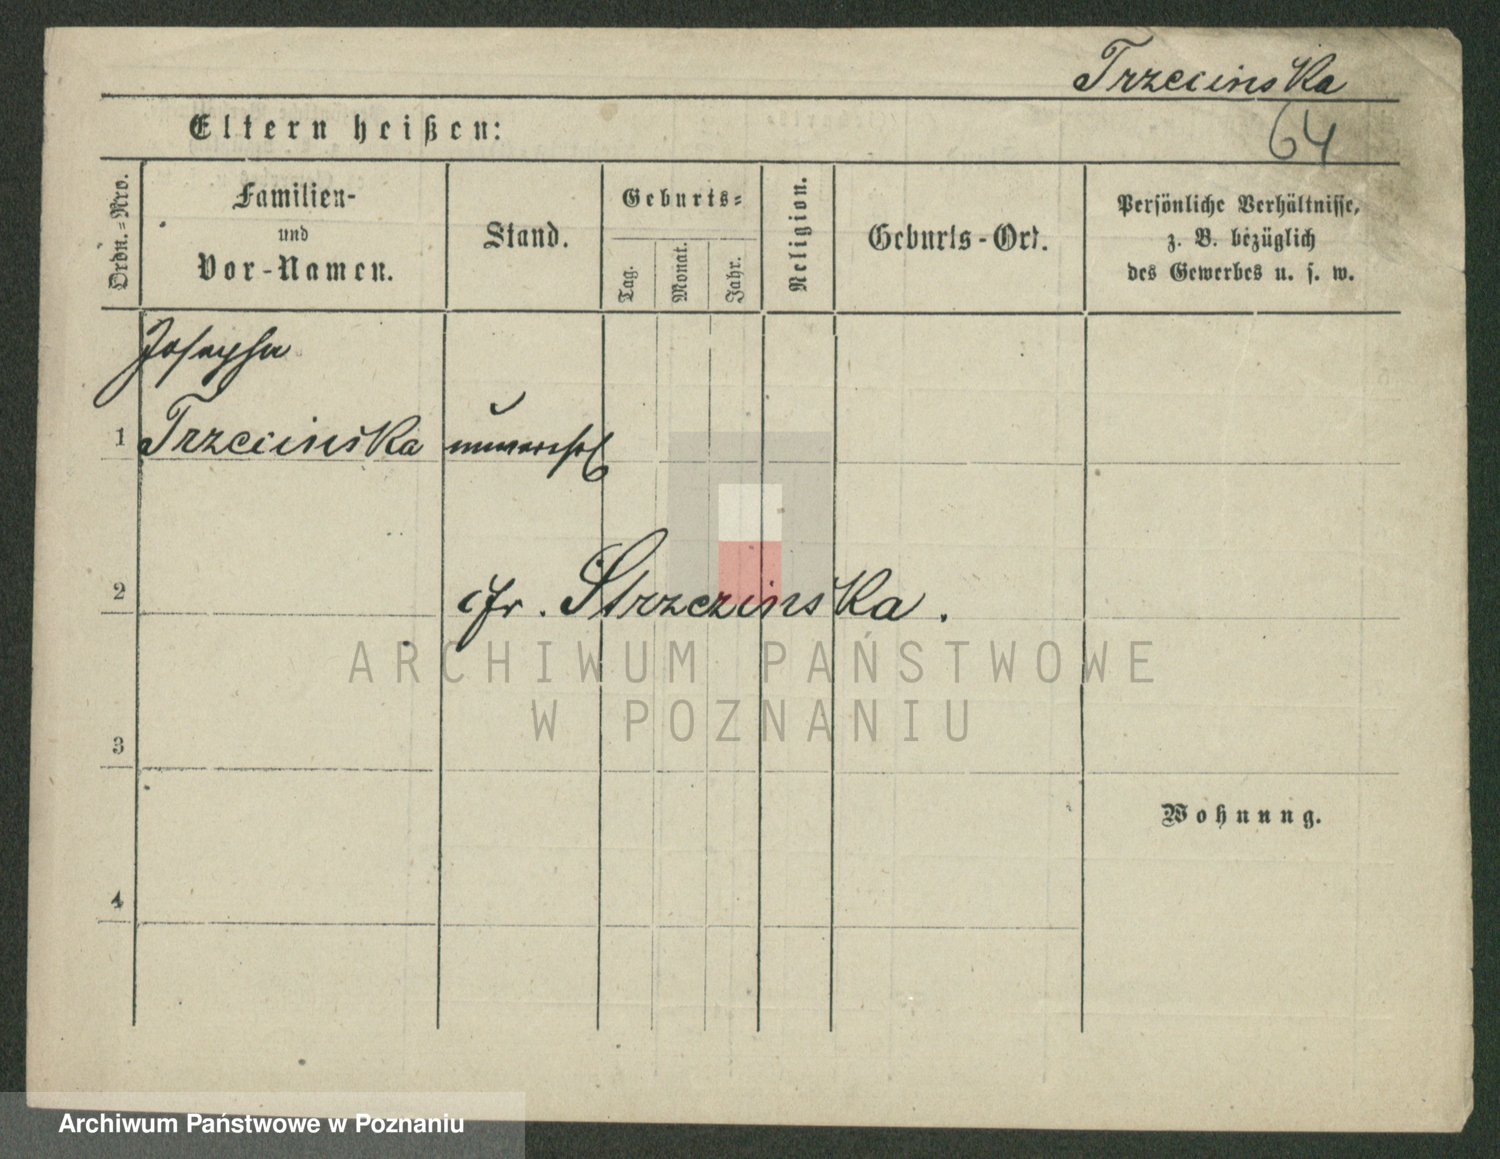 Trzecinska
64
Eltern heißen:
Ordn.=Nro.
Familien-
und
Vor-Namen.
Stand.
Geburts=
Tag.
Monat.
Jahr.
Religion.
Geburts-Ort.
Persönliche Verhältnisse,
z. B. bezüglich
des Gewerbes u. s. w.
Josepha
1 Trzecinska unverehl
2 cfr. Strzezinska.
ARCHIWUM PAŃSTWOWE
W POZNANIU
3
Wohnung.
4
Archiwum Państwowe w Poznaniu